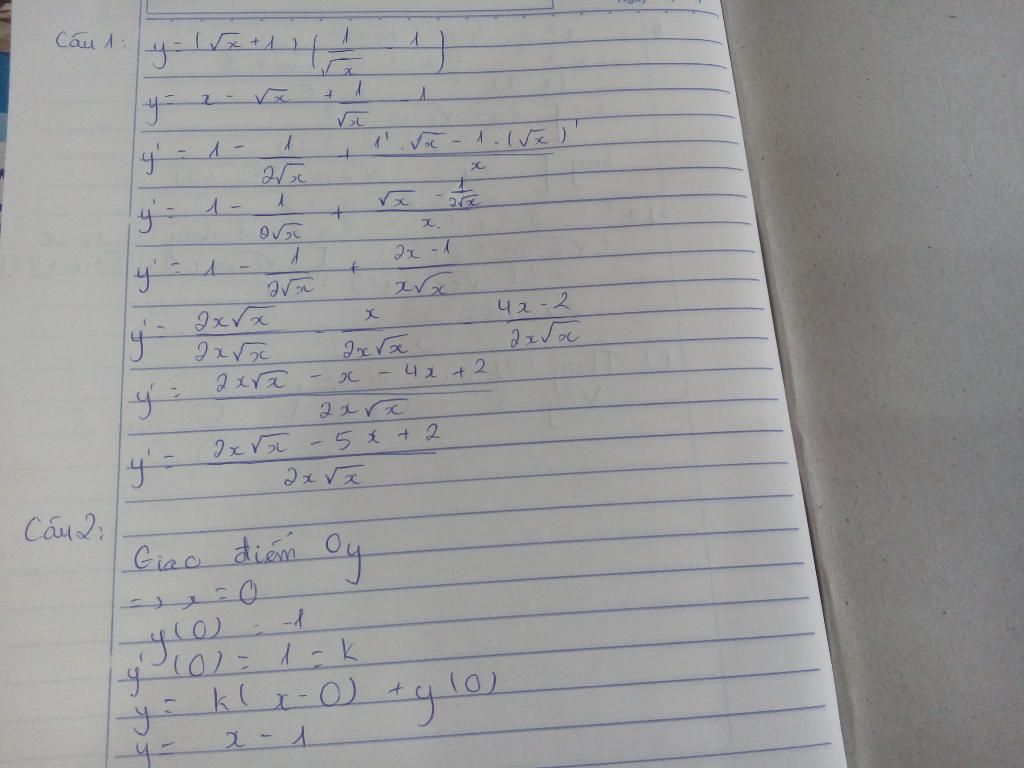 Câu 1: y = (√x + 1) (1/√x - 1)
y = x - √x + 1/√x - 1
y' = 1 - 1/2√x + (1'.√x - 1.(√x)')/x
y' = 1 - 1/2√x + (√x - 1/2√x)/x
y' = 1 - 1/2√x + (2x - 1)/x√x
y' = 2x√x/2x√x - x/2x√x - (4x - 2)/2x√x
y' = (2x√x - x - 4x + 2)/2x√x
y' = (2x√x - 5x + 2)/2x√x
Câu 2:
Giao điểm Oy
=> x = 0
y(0) = -1
y'(0) = 1 = k
y = k(x - 0) + y(0)
y = x - 1